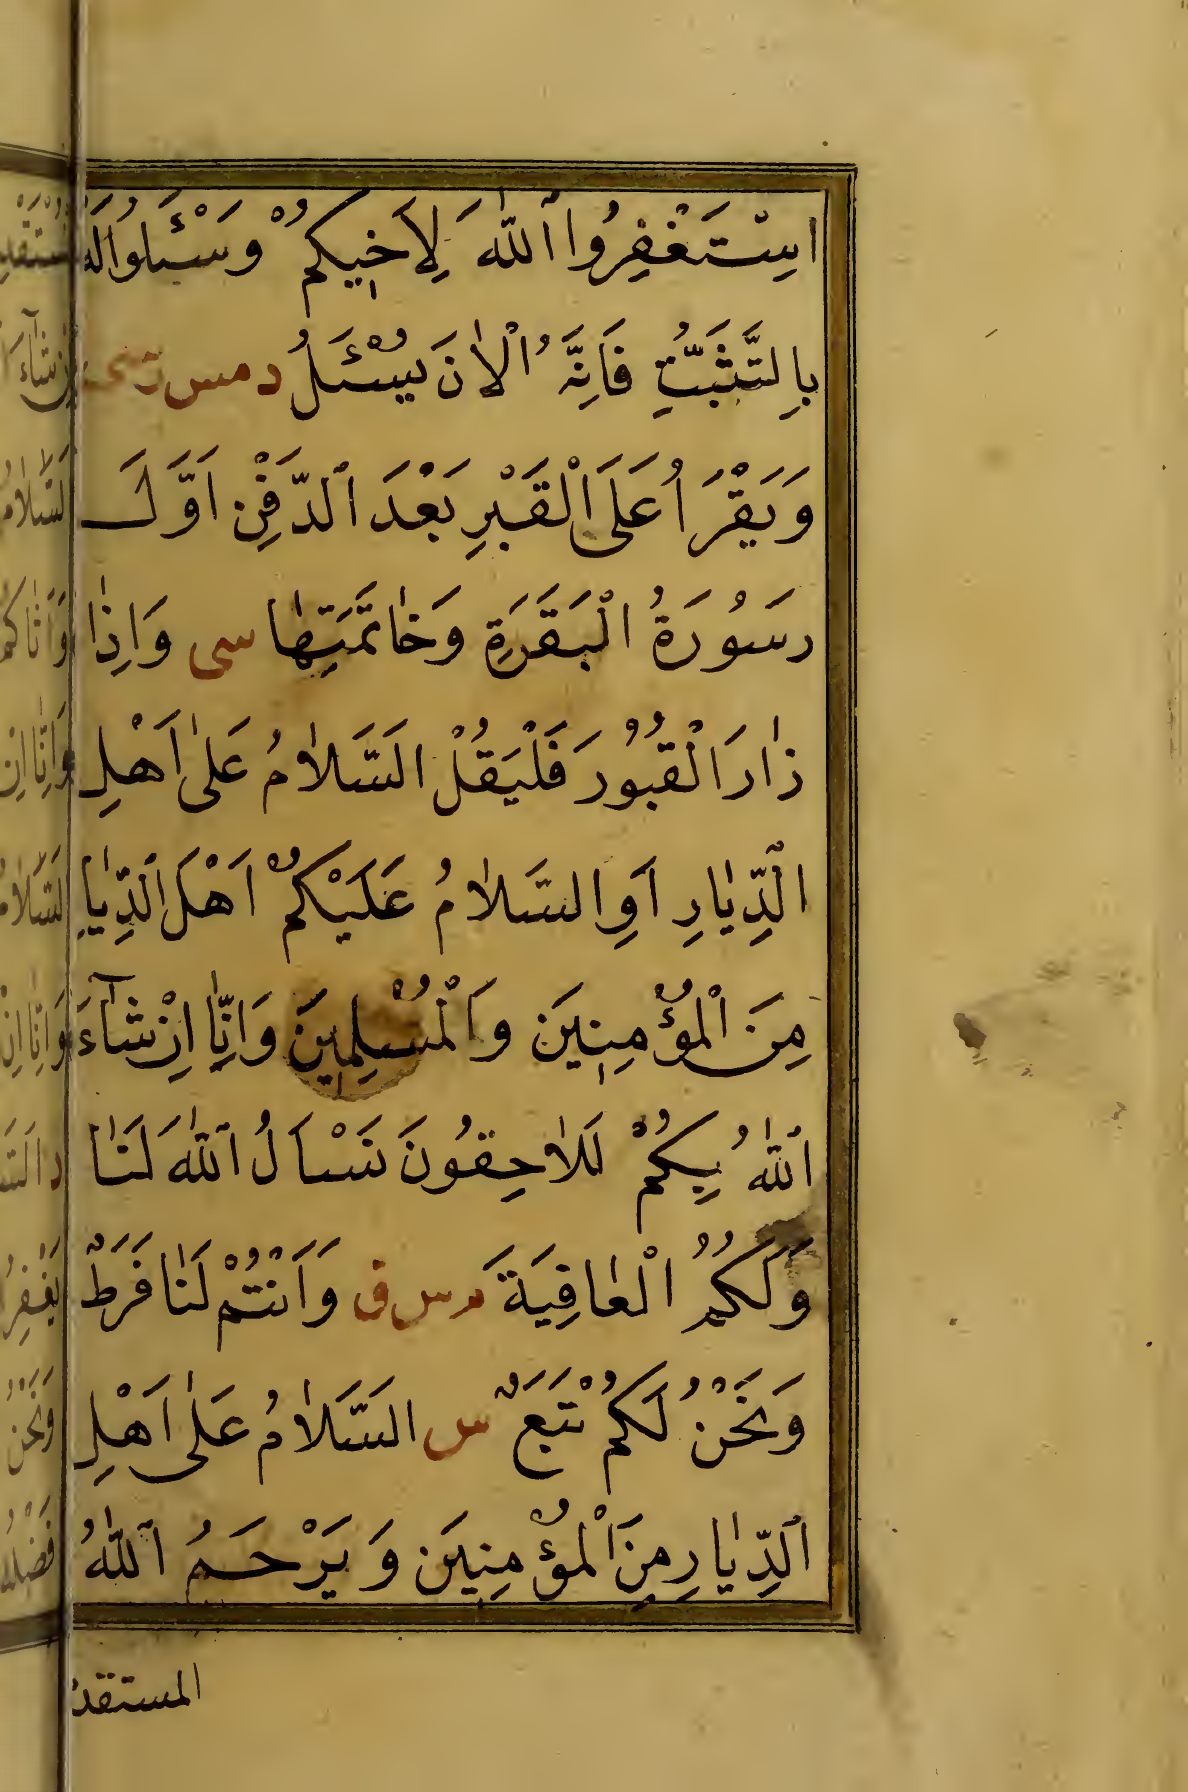 اِسْتَغْفِرُوا اللّٰهَ لِاَخِيكُمْ وَسْئَلُوا لَهُ
بِالتَّثَبُّتِ فَاِنَّهُ الْاٰنَ يُسْئَلُ د مس ر
وَيَقْرَاُ عَلَى الْقَبْرِ بَعْدَ الدَّفْنِ اَوَّلَ
سُورَةُ الْبَقَرَةِ وَخٰاتَمَتِهٰا سى وَاِذٰا
زٰارَ الْقُبُورَ فَلْيَقُلْ اَلسَّلٰامُ عَلٰى اَهْلِ
الدِّيٰارِ اَوِ السَّلٰامُ عَلَيْكُمْ اَهْلَ الدِّيٰارِ
مِنَ الْمُؤْمِنِينَ وَالْمُسْلِمِينَ وَاِنّٰا اِنْ شٰآءَ
اللّٰهُ بِكُمْ لَلٰاحِقُونَ نَسْاَلُ اللّٰهَ لَنٰا
وَلَكُمُ الْعٰافِيَةَ م س ق وَاَنْتُمْ لَنٰا فَرَطٌ
وَنَحْنُ لَكُمْ تَبَعٌ س اَلسَّلٰامُ عَلٰى اَهْلِ
الدِّيٰارِ مِنَ الْمُؤْمِنِينَ وَيَرْحَمُ اللّٰهُ
المستقد